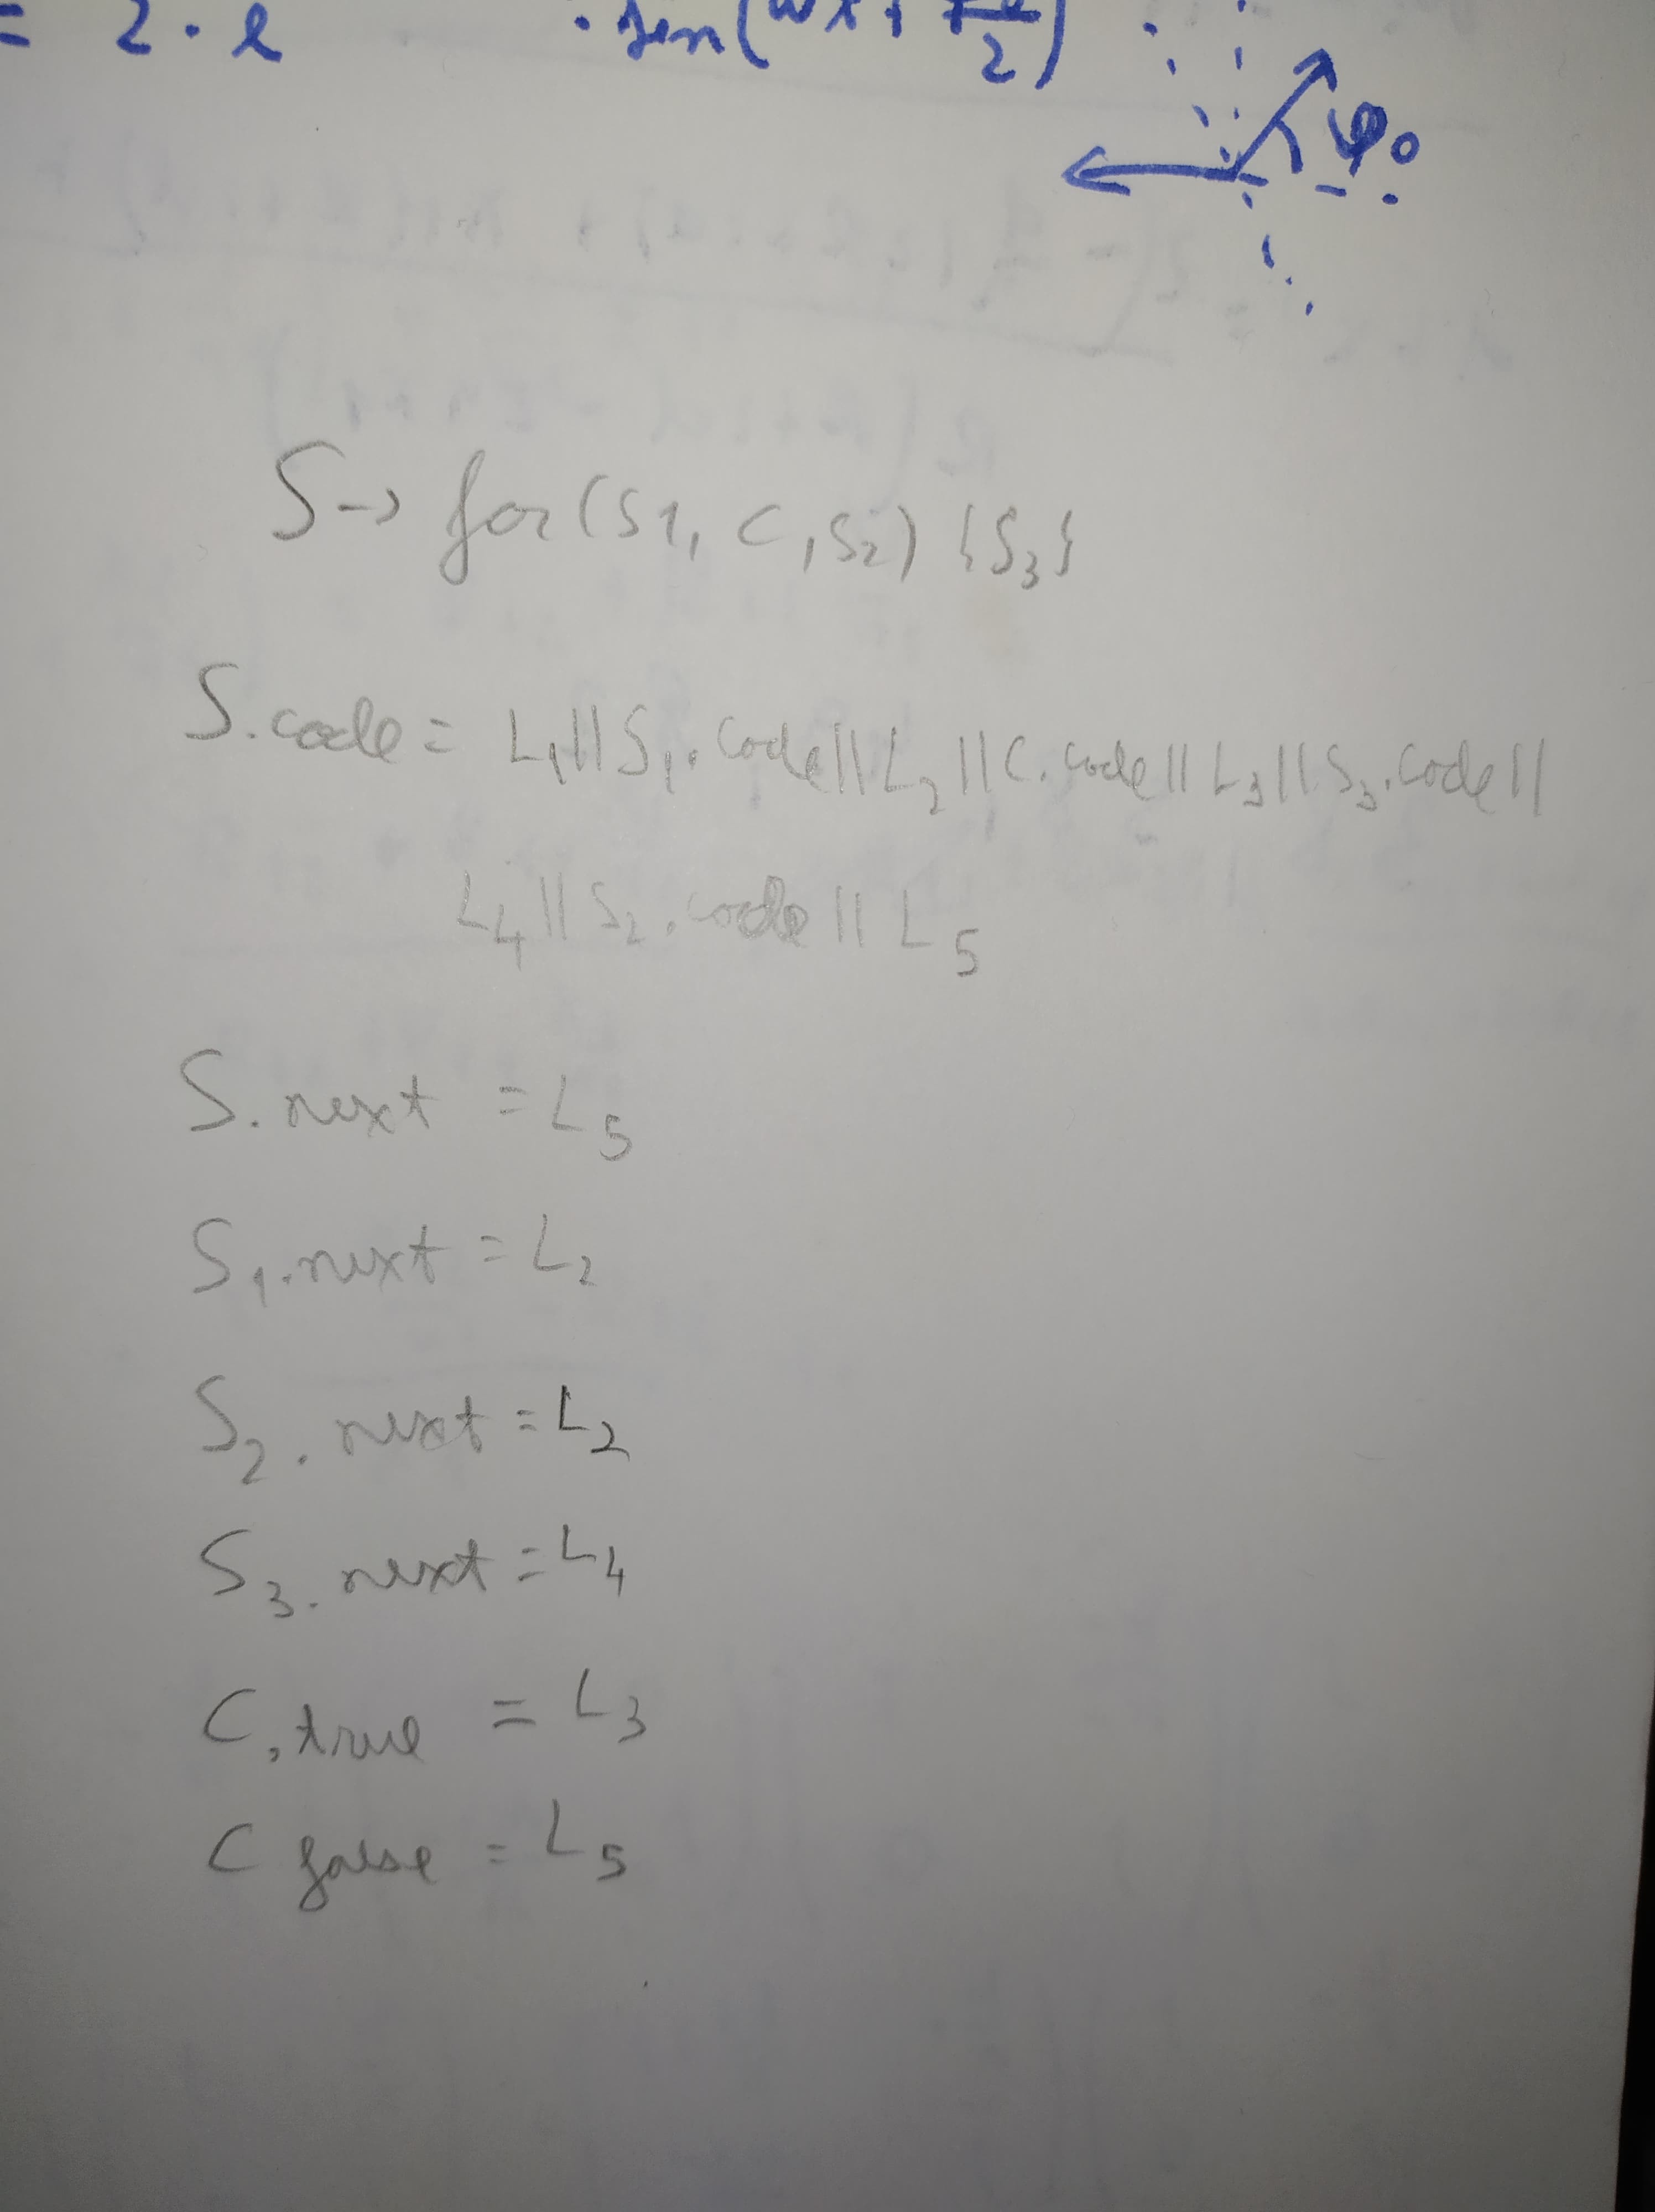 = 2 · e · sen(
2
φ₀
S → for(S1, C, S₂) {S₃}
S.code = L₁||S₁.code||L₂||C.code||L₃||S₃.code||
L₄||S₂.code||L₅
S.next = L₅
S₁.next = L₂
S₂.next = L₂
S₃.next = L₄
C.true = L₃
C false = L₅